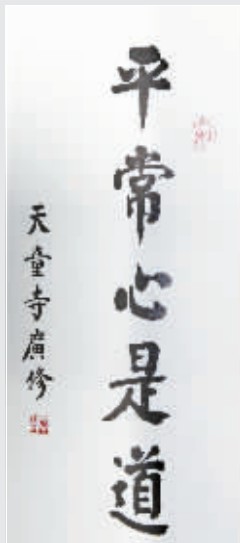 平常心是道
天童寺廣修